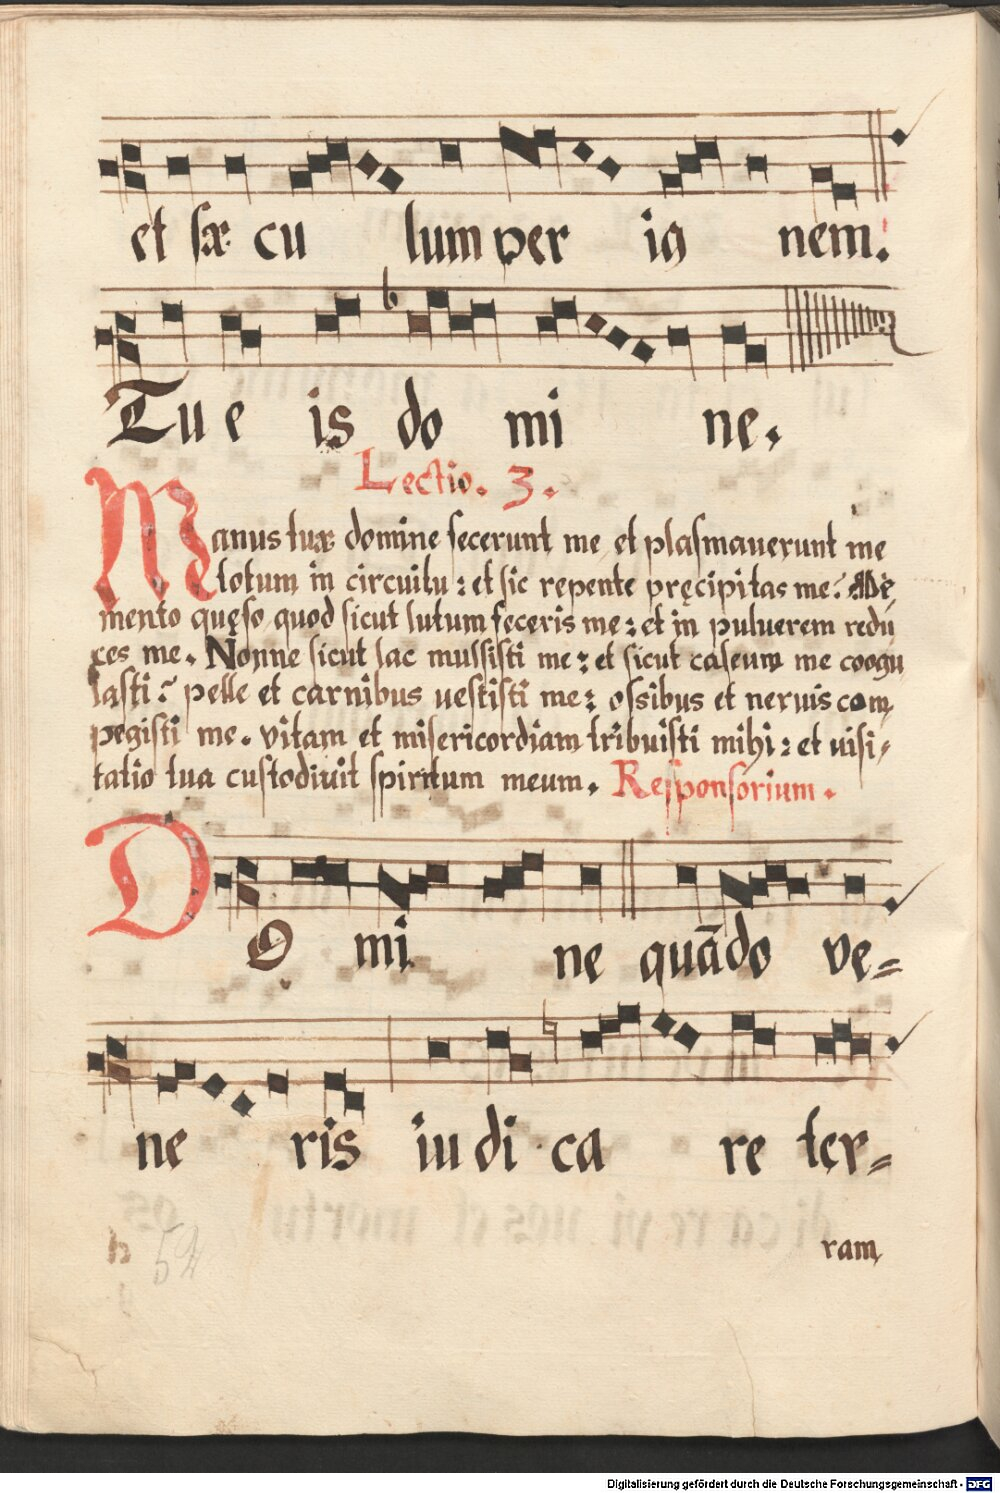 et sæ cu lum per ig nem.
Tu e is do mi ne.
Lectio. 3.
Manus tuæ domine fecerunt me et plasmauerunt me
totum in circuitu: et sic repente pręcipitas me? Me
mento quęso quod sicut lutum feceris me: et in puluerem redu
ces me. Nonne sicut lac mulsisti me: et sicut caseum me coagu
lasti? pelle et carnibus uestisti me: ossibus et neruis com
pegisti me. vitam et misericordiam tribuisti mihi: et uisi,
tatio tua custodiuit spiritum meum. Responsorium.
DO mi ne quādo ve=
ne ris iu di ca re ter=
ram
54
Digitalisierung gefördert durch die Deutsche Forschungsgemeinschaft - DFG